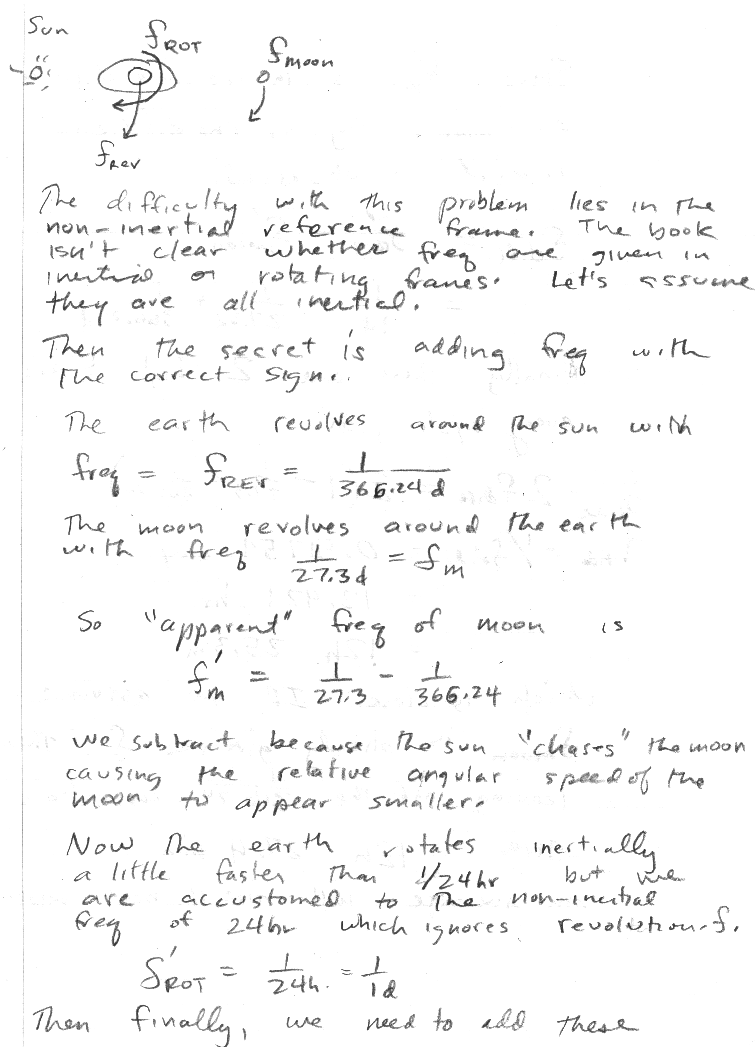 Sun
f_ROT
f_moon
f_Rev
The difficulty with this problem lies in the
non-inertial reference frame. The book
isn't clear whether freq are given in
inertial or rotating frames. Let's assume
they are all inertial.
Then the secret is adding freq with
the correct sign..
The earth revolves around the sun with
freq = f_REV = 1/365.24 d
The moon revolves around the earth
with freq 1/27.3d = f_m
So "apparent" freq of moon is
f'_m = 1/27.3 - 1/365.24
we subtract because the sun "chases" the moon
causing the relative angular speed of the
moon to appear smaller.
Now the earth rotates inertially
a little faster than 1/24hr but we
are accustomed to the non-inertial
freq of 24hr which ignores revolution f.
f'_ROT = 1/24h. = 1/1d
Then finally, we need to add these